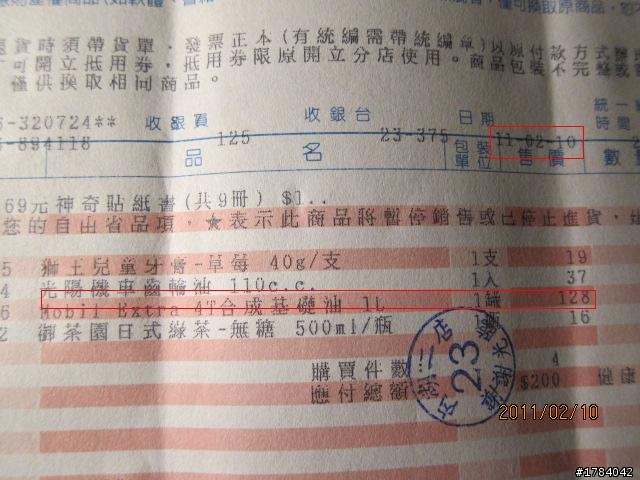 貨時須帶貨單﹐發票正本(有統編需帶統編章)以原付款方式辦
可開立抵用券﹐抵用券限原開立分店使用。商品包裝不完整或
僅供換取相同商品。
-320724** 收銀員 收銀台 日期 統一
-894118 125 23-375 11-02-10 時間
品 名 包裝單位 售價 數
69元神奇貼紙書(共9冊) $1..
您的自由省品項﹐★表示此商品將暫停銷售或已停止進貨﹐
5 獅王兒童牙膏-草莓 40g/支 1支 19
4 光陽機車齒輪油 110c.c. 1入 37
6 Mobil Extra 4T合成基礎油 1L 1罐 128
2 御茶園日式綠茶-無糖 500ml/瓶 16
購買件數 4
應付總額 $200 健康
店 23
2011/02/10
#1784042